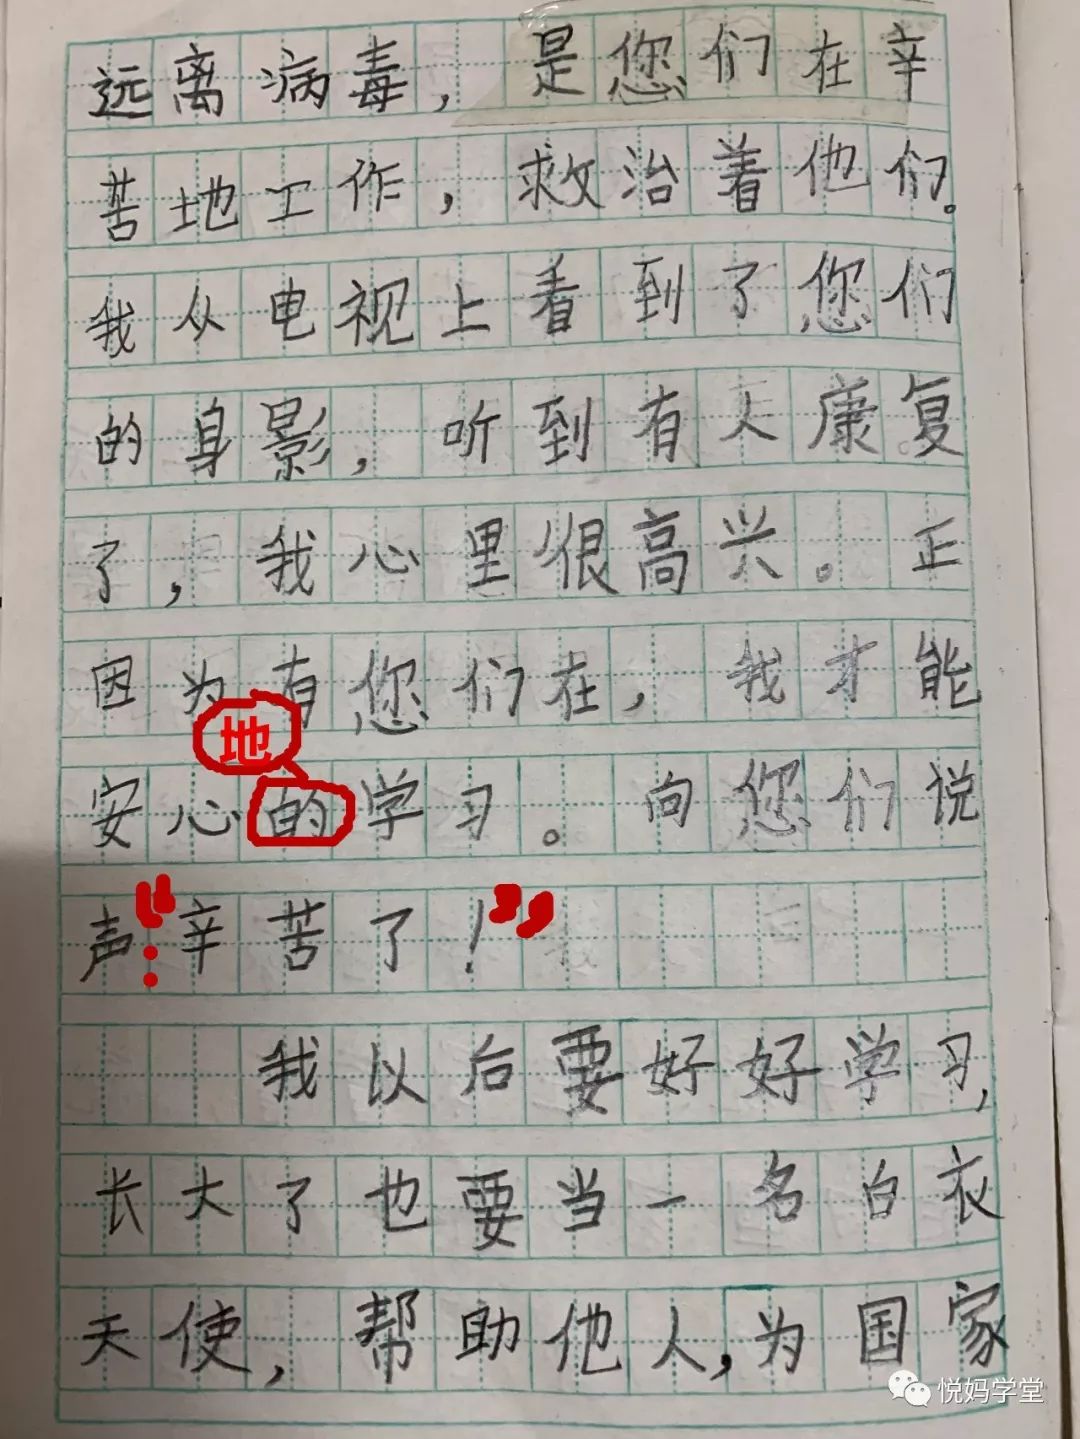 远离病毒，是您们在辛
苦地工作，救治着他们。
我从电视上看到了您们
的身影，听到有人康复
了，我心里很高兴。正
因为有您们在，我才能
地
安心的学习。向您们说
声：“辛苦了！”
我以后要好好学习，
长大了也要当一名白衣
天使，帮助他人，为国家
悦妈学堂